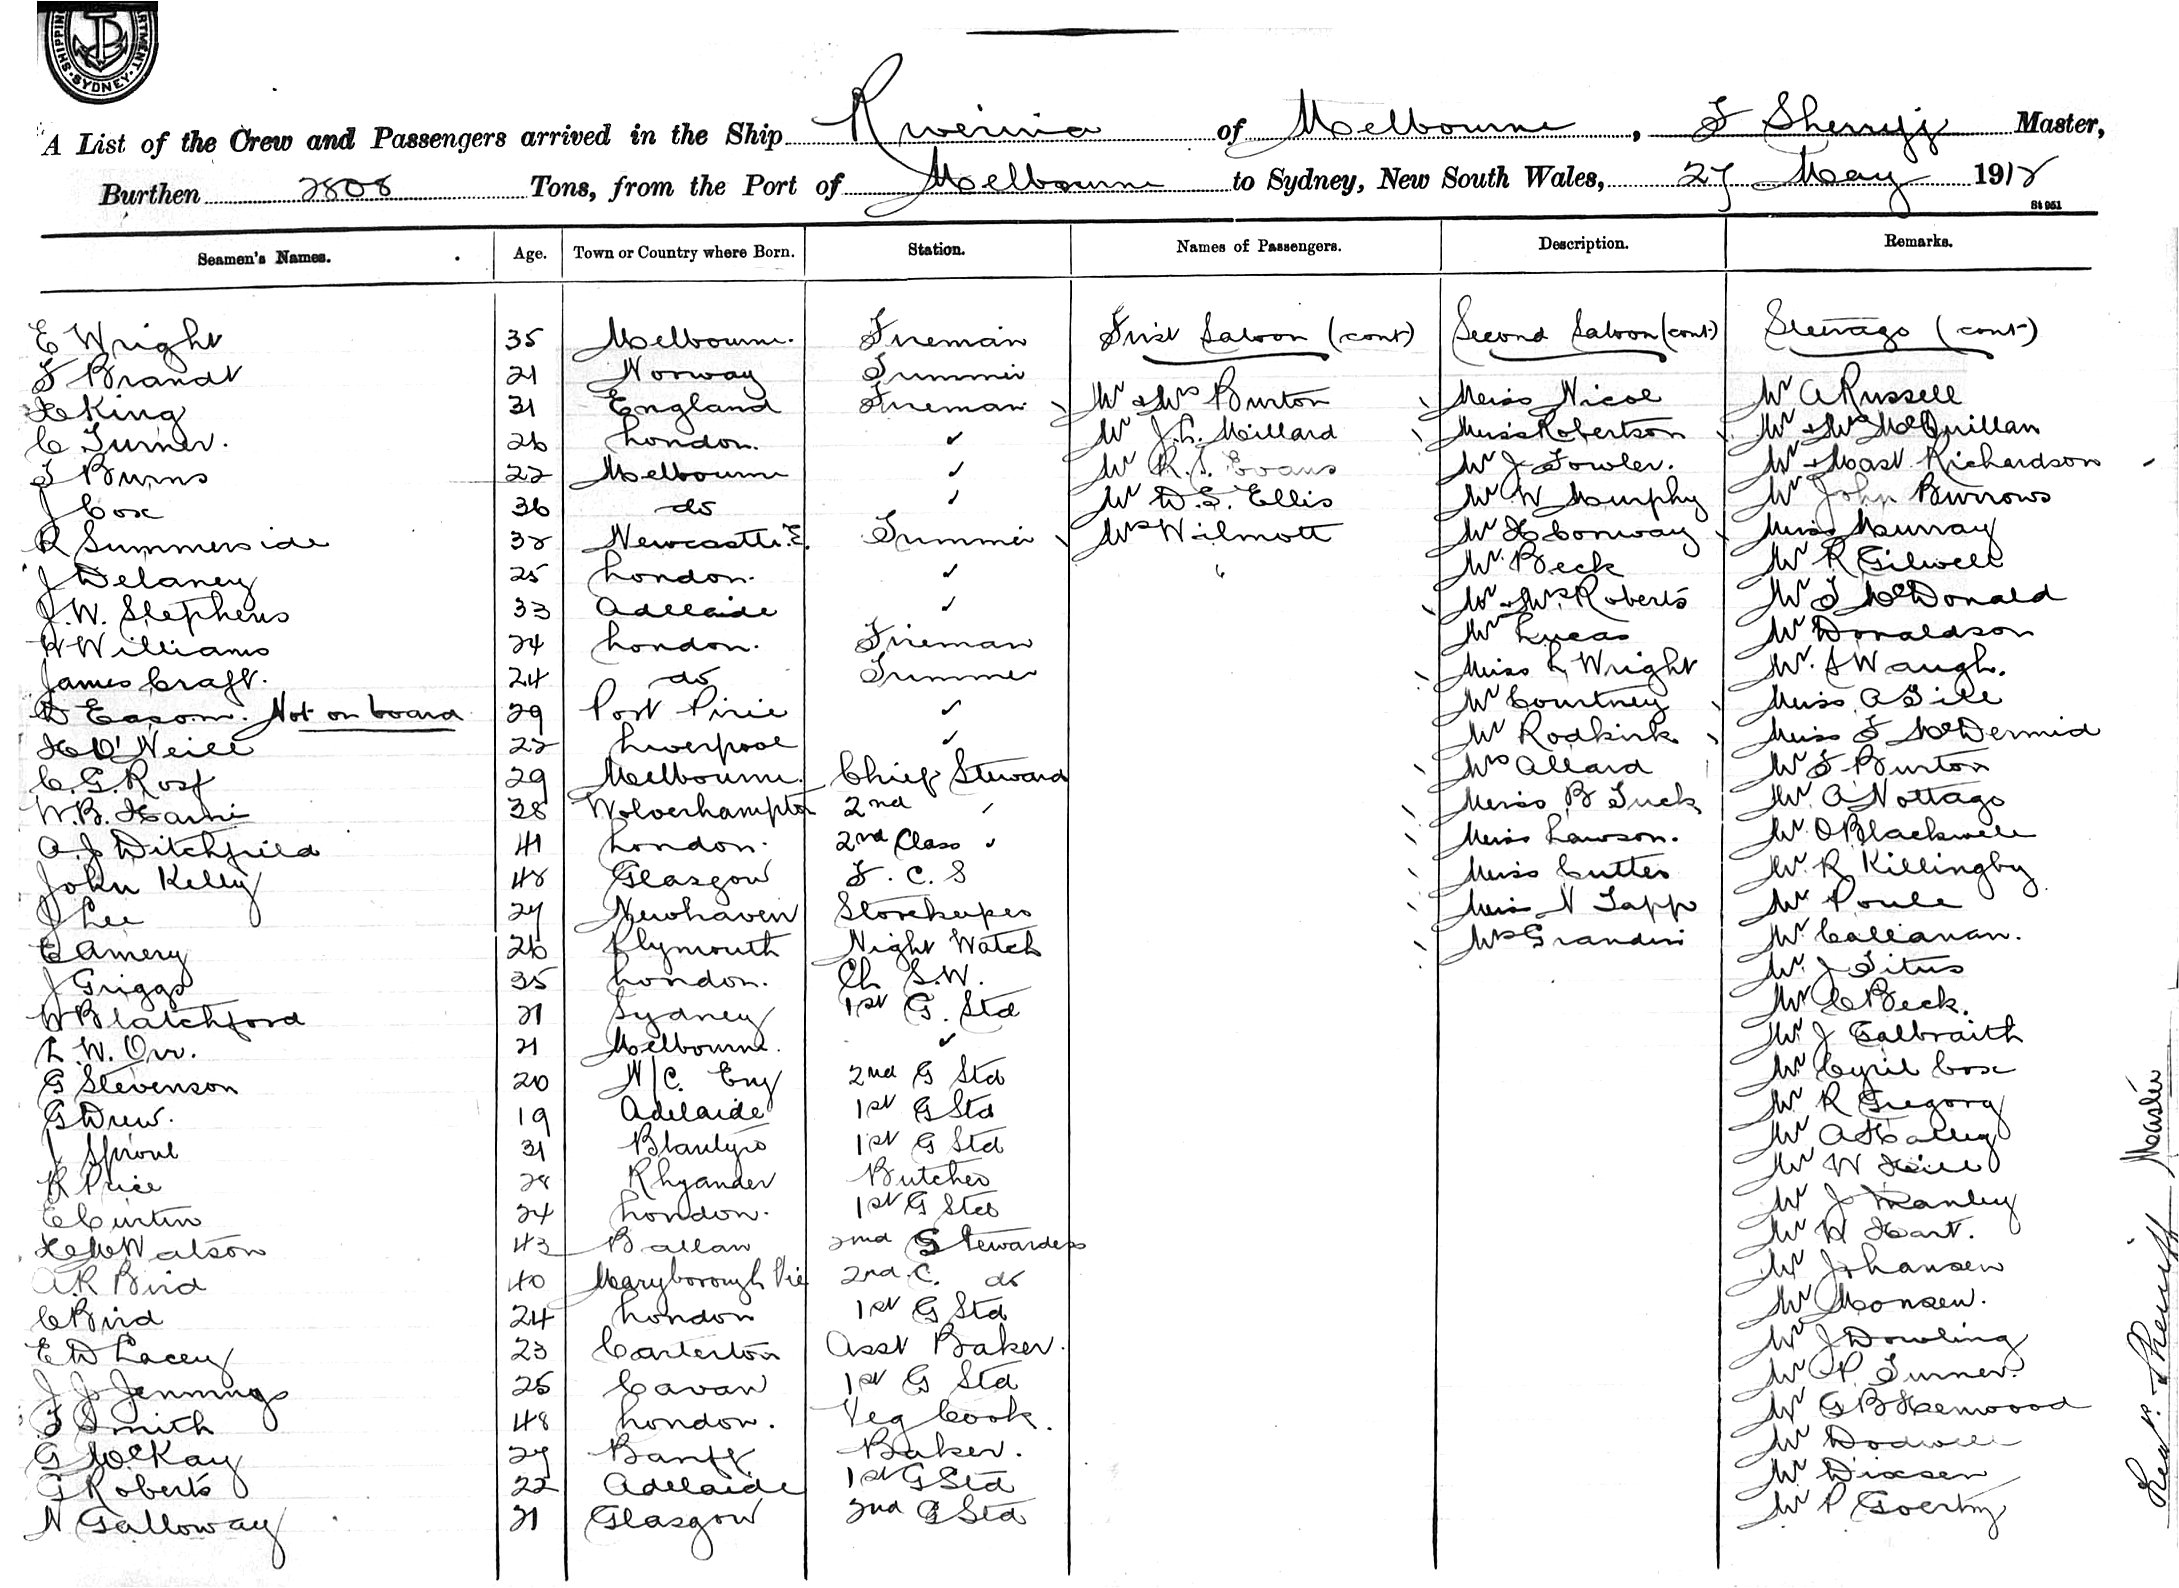 SHIPPING DEPARTMENT SYDNEY
A List of the Crew and Passengers arrived in the Ship Riverina of Melbourne, F Sherriff Master,
Burthen 2808 Tons, from the Port of Melbourne to Sydney, New South Wales, 27 May 1912
St 951
Seamen's Names. Age. Town or Country where Born. Station. Names of Passengers. Description. Remarks.
E Wright 35 Melbourne. Fireman First Saloon (cont) Second Saloon (cont) Steerage (cont)
F Brandt 21 Norway Trimmer
H King 31 England Fireman Mr & Mrs Burton Miss Nicol Mr A Russell
C Turner. 26 London. ✓ Mr J.L. Millard Miss Robertson Mr & Mrs McQuillan
F Burns 22 Melbourne ✓ Mr R.J. Evans Mr J Fowler. Mr & Mast Richardson
J Cox 36 do ✓ Mr D.S. Ellis Mr W Murphy Mr John Burrows
R Summerside 32 Newcastle. E. Trimmer Mrs Wilmott Mr H Conway Miss Murray
J Delaney 25 London. ✓ Mr. Beck Mr R Gilwell
J.W. Stephens 33 Adelaide ✓ Mr & Mrs Roberts Mr J McDonald
W Williams 24 London. Fireman Mr Lucas Mr Donaldson
James Craft. 24 do Trimmer Miss L Wright Mr. S Waugh.
D Eason. Not on board 29 Port Pirie ✓ Mr Courtney Miss A Gill
H O'Neill 22 Liverpool ✓ Mr Rodkirk Miss J McDermid
C. G. Rosf 29 Melbourne. Chief Steward Mrs Allard Mr F Burton
W.B. 38 Wolverhampton 2nd Miss B Tuck Mr A Nottage
A. J Ditchfield 41 London. 2nd Class Miss Lawson. Mr O Blackwell
John Kelly 48 Glasgow F. C. S Miss Cutter Mr. R Killingby
J Lee 27 Newhaven Storekeeper Miss N Tapp Mr Poule
E Amery 26 Plymouth Night Watch Mrs Grandini Mr. Callanan.
J Griggs 35 London. Ch S.W. Mr. J Titus
W Blatchford 21 Sydney 1st G. Std Mr C Beck.
L. W. Orr. 21 Melbourne. ✓ Mr. J Galbraith
G Stevenson 20 N/C. Eng 2nd G Std Mr Cyril Cox
G Drew. 19 Adelaide 1st G Std Mr R Gregory
J Sproul 31 1st G Std Mr A Halley
R Price 28 Rhyander Butcher Mr W Hill
E Curtin 24 London. 1st G Std Mr J Manley
H M Watson 43 Ballan 2nd G Stewardess Mr W Hart.
A.R Bird 40 Maryborough Vic 2nd. C. do Mr Johansen
C Bird 24 London 1st G Std Mr Monsen.
E D Lacey 23 Carterton Asst Baker. Mr J Dowling
J J Jennings 25 Cavan 1st G Std Mr P. Turner.
F Smith 48 London. Veg Cook. Mr G B Henwood
G McKay 27 Banff Baker. Mr Dodwell
G Roberts 22 Adelaide 1st G Std Mr Dixsen
N Galloway 21 Glasgow 2nd G Std Mr P Goerty
Master